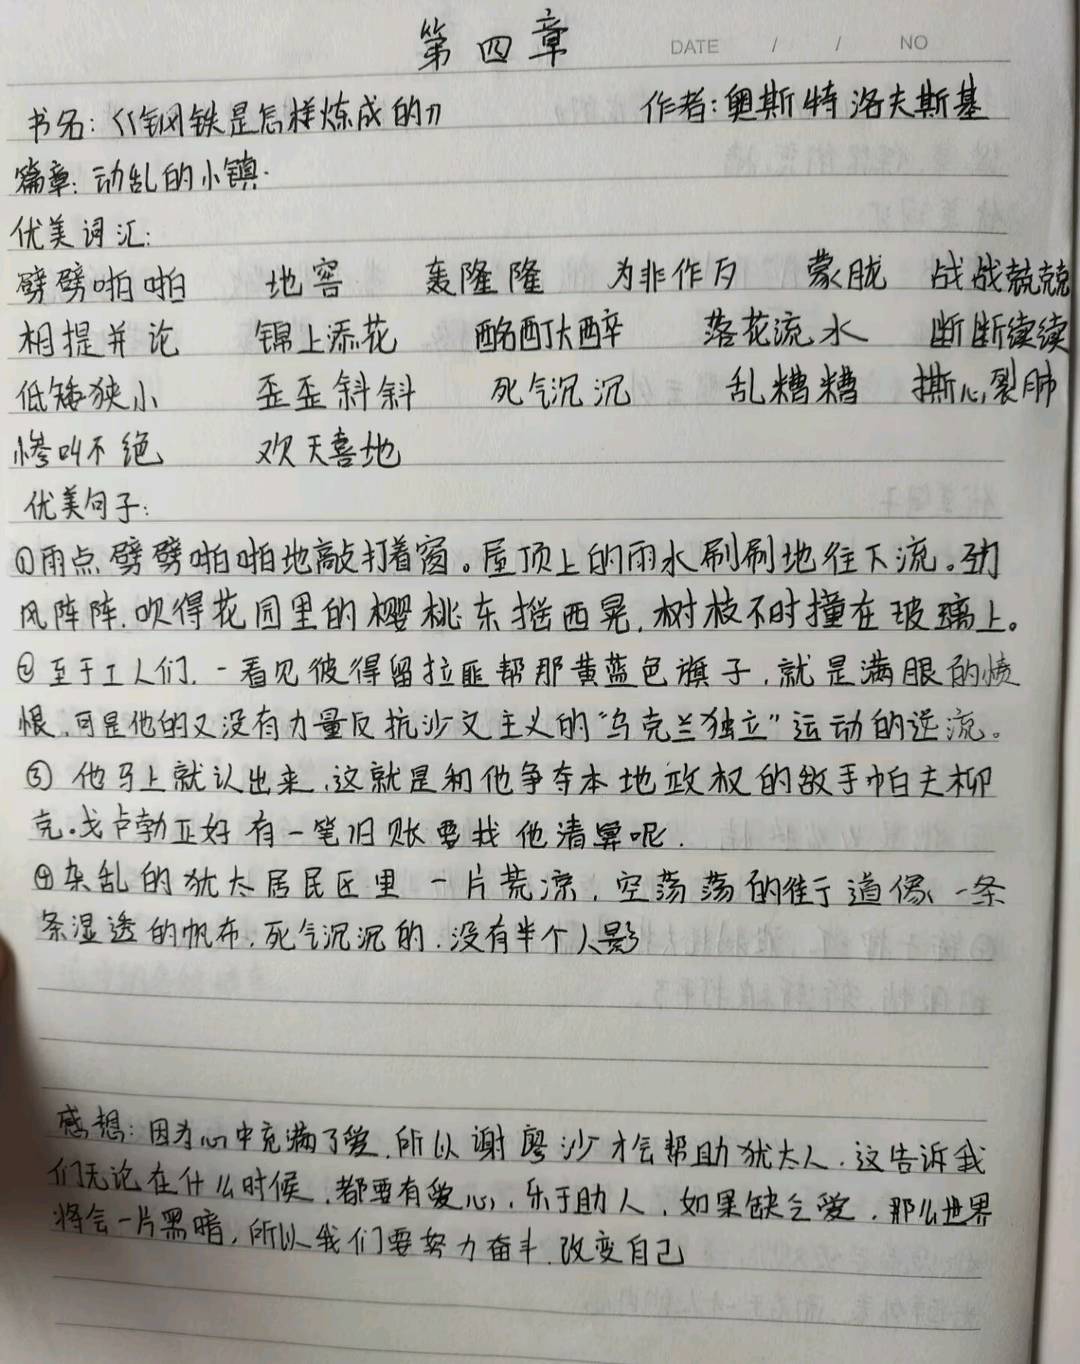 第四章
DATE / / NO
书名:《钢铁是怎样炼成的》 作者:奥斯特洛夫斯基
篇章:动乱的小镇.
优美词汇:
劈劈啪啪 地窖 轰隆隆 为非作歹 蒙胧 战战兢兢
相提并论 锦上添花 酩酊大醉 落花流水 断断续续
低矮狭小 歪歪斜斜 死气沉沉 乱糟糟 撕心裂肺
惨叫不绝 欢天喜地
优美句子:
①雨点劈劈啪啪地敲打着窗。屋顶上的雨水刷刷地往下流。劲
风阵阵,吹得花园里的樱桃东摇西晃,树枝不时撞在玻璃上。
②至于工人们,一看见彼得留拉匪帮那黄蓝色旗子,就是满眼的愤
恨,可是他的又没有力量反抗沙文主义的“乌克兰独立”运动的逆流。
③ 他马上就认出来,这就是和他争夺本地政权的敌手帕夫柳
克.戈卢勃正好有一笔旧账要找他清算呢.
④杂乱的犹太居民区里一片荒凉,空荡荡的街道像一条
条湿透的帆布,死气沉沉的,没有半个人影
感想:因为心中充满了爱,所以谢廖沙才会帮助犹太人,这告诉我
们无论在什么时候,都要有爱心,乐于助人,如果缺乏爱,那么世界
将会一片黑暗,所以我们要努力奋斗,改变自己